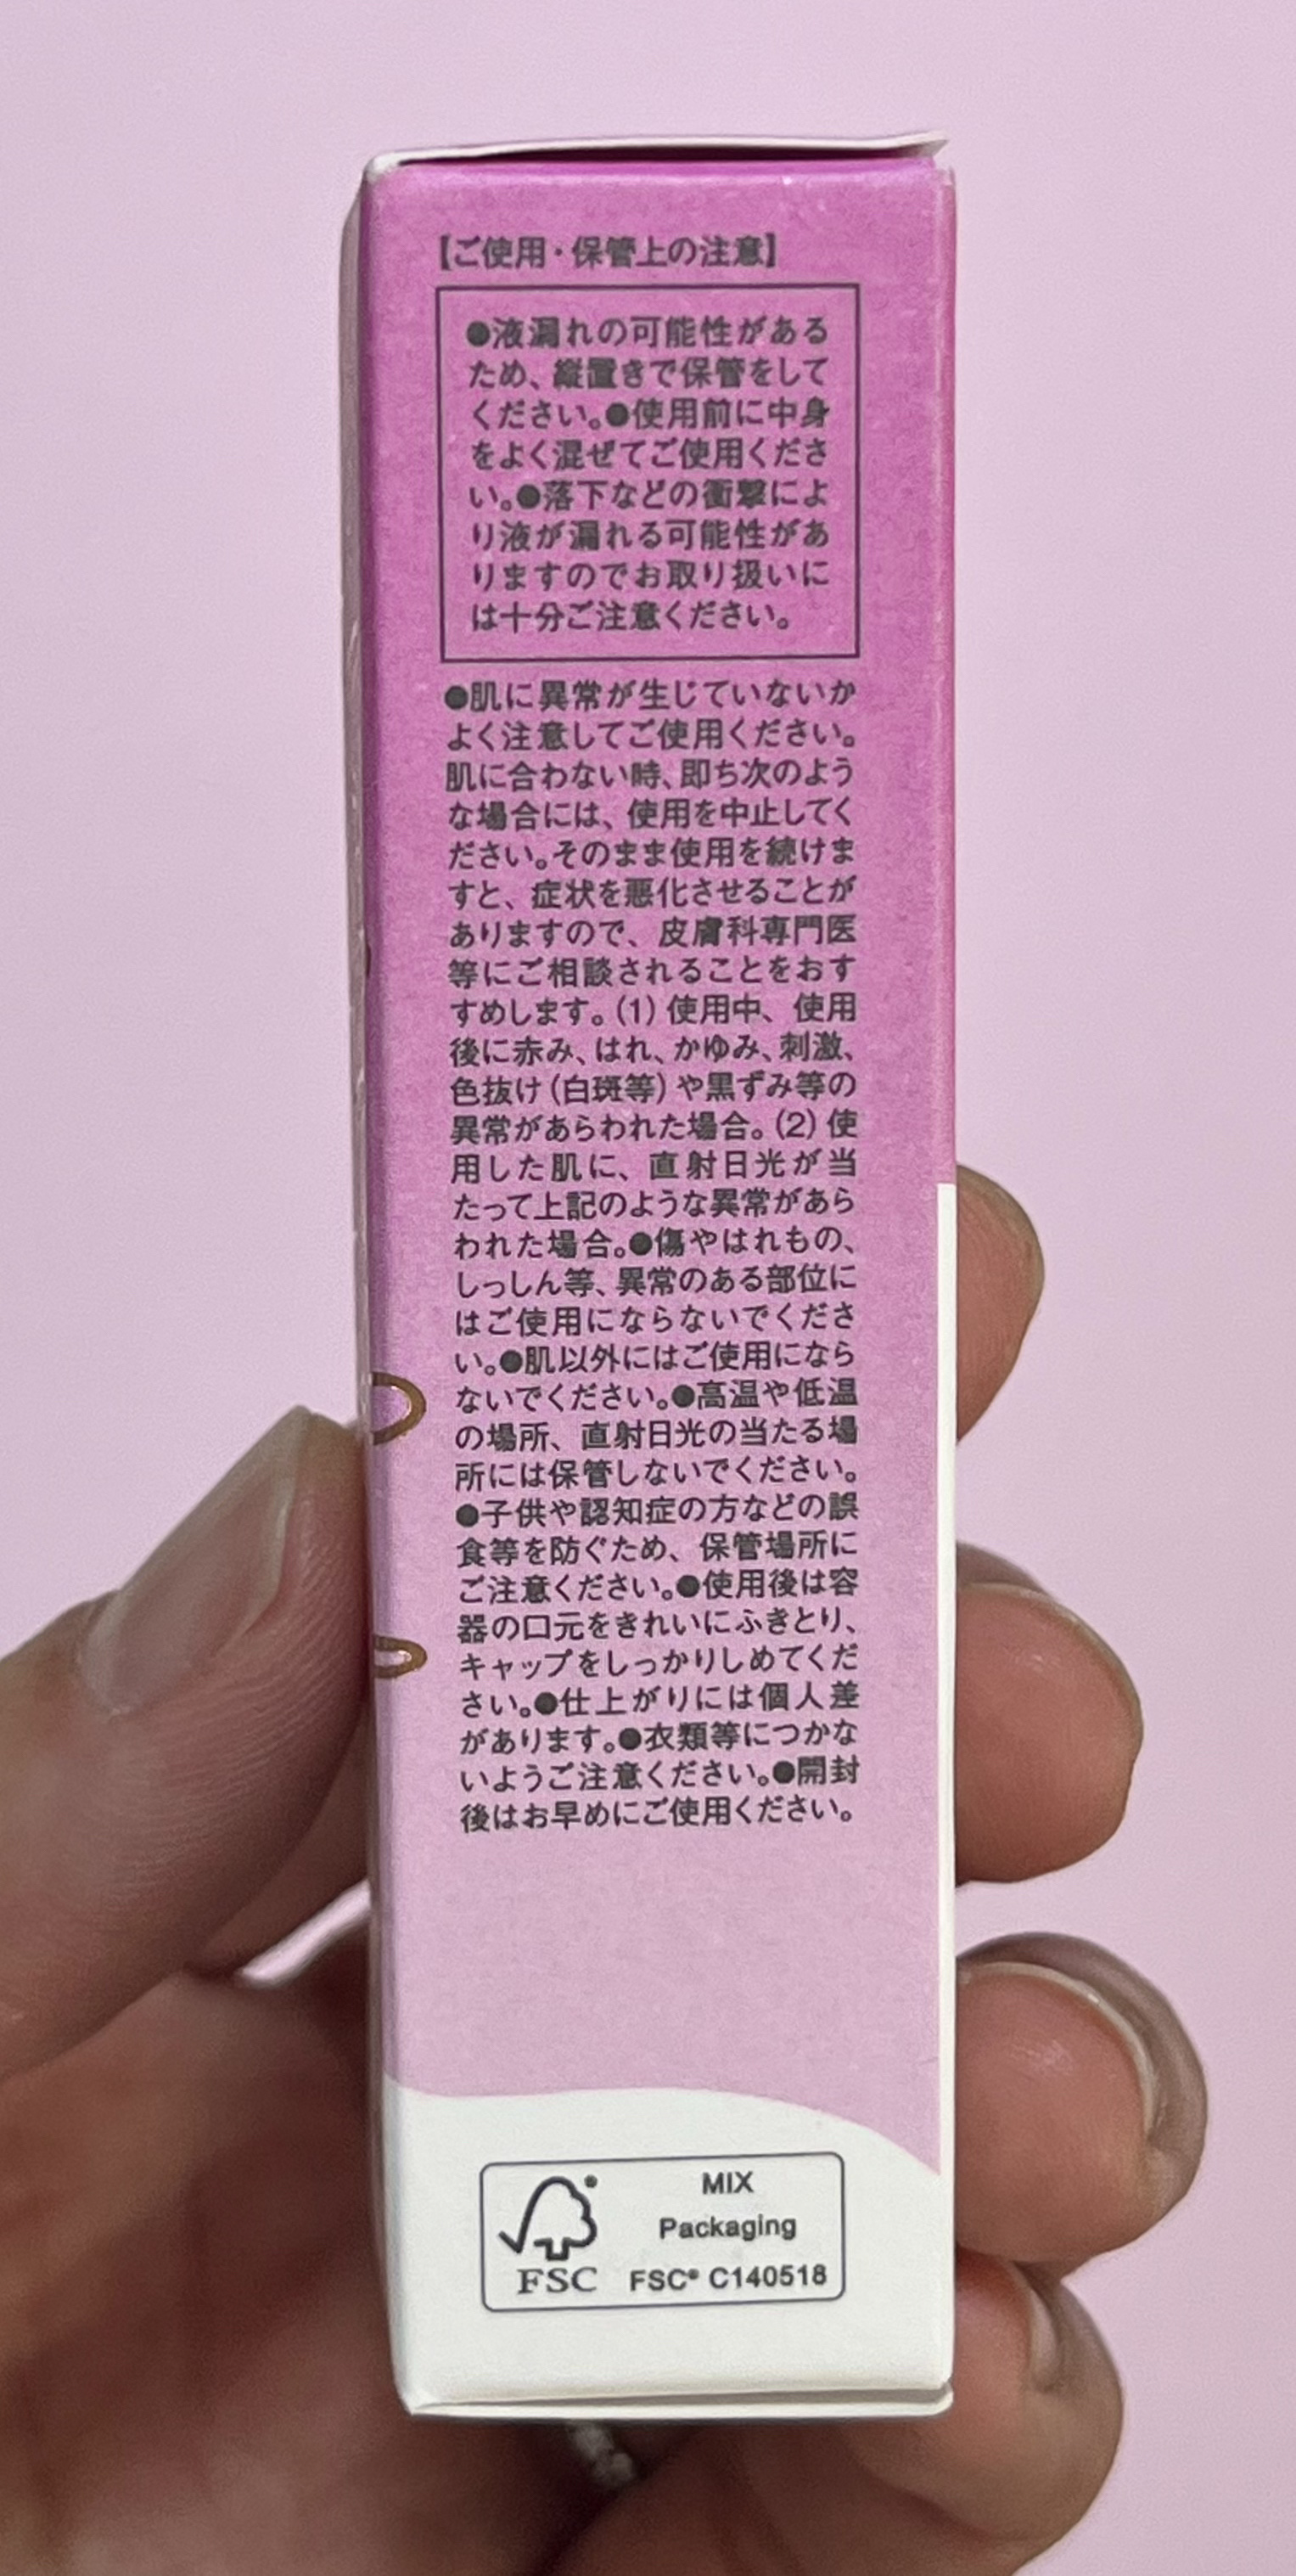 【ご使用・保管上の注意】
●液漏れの可能性がある
ため、縦置きで保管をして
ください。●使用前に中身
をよく混ぜてご使用くださ
い。●落下などの衝撃によ
り液が漏れる可能性があ
りますのでお取り扱いに
は十分ご注意ください。
●肌に異常が生じていないか
よく注意してご使用ください。
肌に合わない時、即ち次のよう
な場合には、使用を中止してく
ださい。そのまま使用を続けま
すと、症状を悪化させることが
ありますので、皮膚科専門医
等にご相談されることをおす
すめします。(1) 使用中、使用
後に赤み、はれ、かゆみ、刺激、
色抜け(白斑等)や黒ずみ等の
異常があらわれた場合。(2) 使
用した肌に、直射日光が当
たって上記のような異常があら
われた場合。●傷やはれもの、
しっしん等、異常のある部位に
はご使用にならないでくださ
い。●肌以外にはご使用になら
ないでください。●高温や低温
の場所、直射日光の当たる場
所には保管しないでください。
●子供や認知症の方などの誤
食等を防ぐため、保管場所に
ご注意ください。●使用後は容
器の口元をきれいにふきとり、
キャップをしっかりしめてくだ
さい。●仕上がりには個人差
があります。●衣類等につかな
いようご注意ください。●開封
後はお早めにご使用ください。
MIX
Packaging
FSC
FSC® C140518